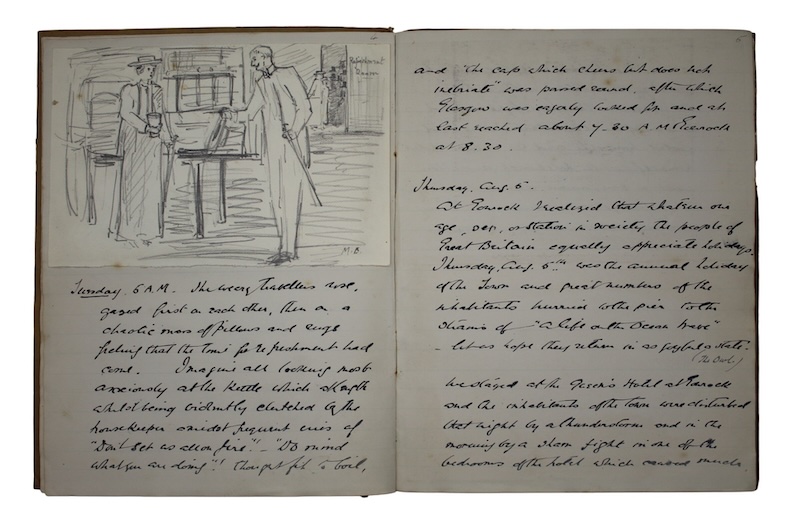 Refreshment
Room
M.B.
Tuesday. 6 A.M. The weary travellers rose,
gazed first on each other, then on a
chaotic mass of pillows and rugs
feeling that the time for refreshment had
come. Imagine all looking most
anxiously at the kettle which at length
whilst being violently clutched by the
housekeeper amidst frequent cries of
"Don't set us all on fire"! - "Do mind
what you are doing"! thought fit to boil,
and "the cup which cheers but does not
inebriate" was passed round, after which
Glasgow was eagerly looked for and at
last reached about 7.30 A.M.
at 8.30.
Thursday. Aug. 5.
At Gourock I realized that whatever one
age, sex, or station in society the people of
Great Britain equally appreciate holidays.
Thursday, Aug. 5th was the annual holiday
of the Town and great numbers of the
inhabitants hurried to the pier to the
strains of "A life on the Ocean Wave"
- let us hope they return in as joyful a state.
We stayed at the Queen's Hotel at Gourock
and the inhabitants of the town were disturbed
that night by a thunderstorm and in the
morning by a sham fight in one of the
bedrooms of the hotel which caused much